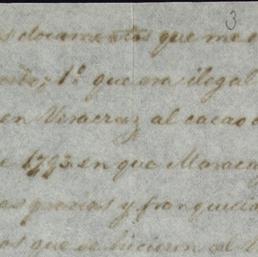 3
documentos que me
1º. que era ilegal
en Veracruz al cacao
e 1793 en que Maraca
gracias y franquici
os que se hicieron al